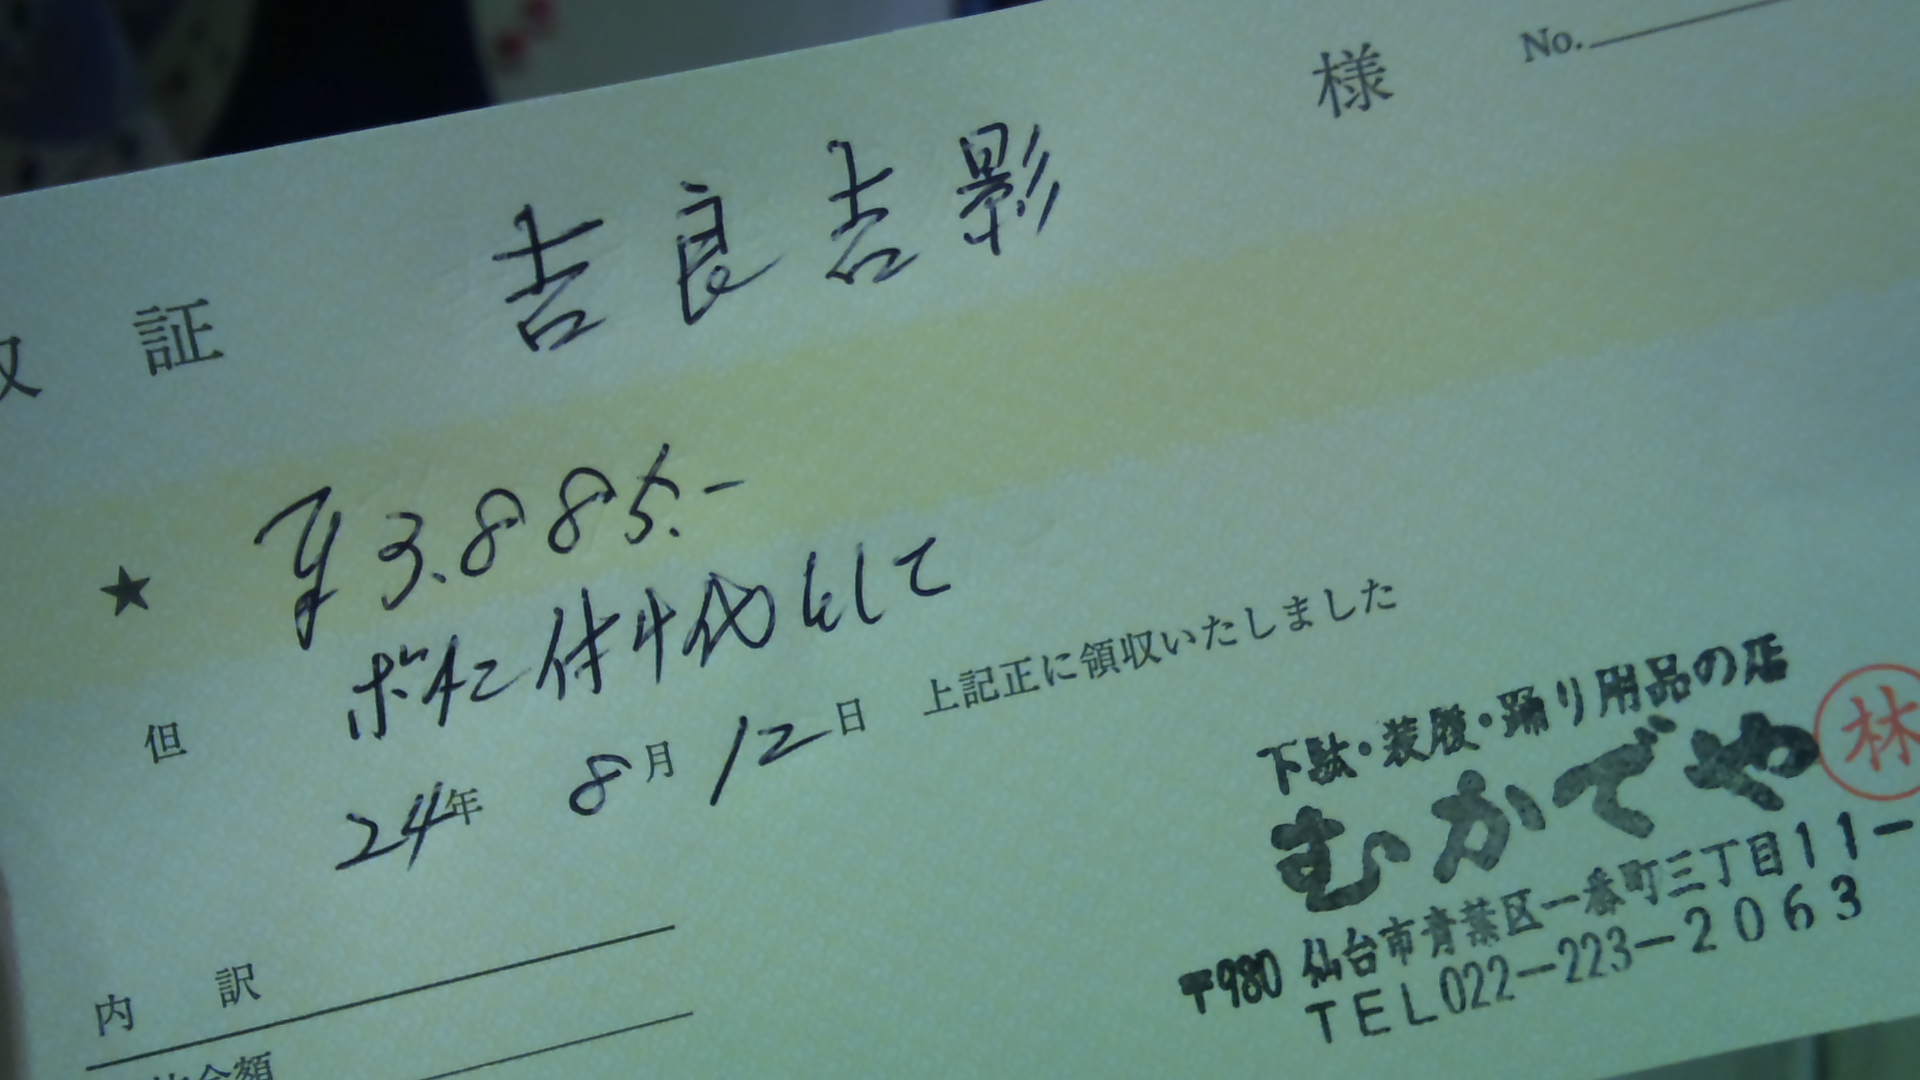 No.
収 証 吉良吉影 様
★ ¥3.885.-
但 ボタン付け代として
24年 8月 12日 上記正に領収いたしました
下駄・装履・踊り用品の店
むかでや 林
〒980 仙台市青葉区一番町三丁目11-
TEL022-223-2063
内 訳
金額